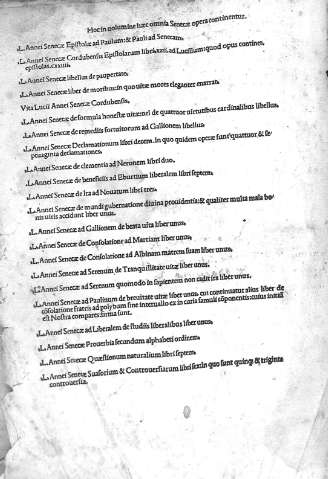 Hoc in uolumine hæc omnia Senecæ opera continentur.
.L. Annei Senecæ Epistolæ ad Paulum: & Pauli ad Senecam.
.L. Annei Senecæ Cordubensis Epistolarum libri ad Lucilium: quod opus continet
epistolas
.L. Annei Senecæ libellus de paupertate.
.L. Annei Senecæ liber de moribus: in quo uitæ mores eleganter enarrat.
Vita Lucii Annei Senecæ Cordubensis.
.L. Annei Senecæ de formula honestæ uitæ: uel de quattuor uirtutibus cardinalibus libellus.
.L. Annei Senecæ de remediis fortuitorum ad Gallionem libellus.
.L. Annei Senecæ Declamationum libri decem. in quo quidem opere sunt quattuor & se
ptuaginta declamationes.
.L. Annei Senecæ de clementia ad Neronem libri duo.
.L. Annei Senecæ de beneficiis ad Eburtium liberalem libri septem.
.L. Annei Senecæ de Ira ad Nouatum libri tres.
.L. Annei Senecæ de mundi gubernatione diuina prouidentia: & qualiter multa mala bo
nis uiris accidant liber unus.
.L. Annei Senecæ ad Gallionem de beata uita liber unus.
.L. Annei Senecæ de Consolatione ad Martiam liber unus.
.L. Annei Senecæ de Consolatione ad Albinam matrem suam liber unus.
.L. Annei Senecæ ad Serenum de Tranquillitate uitæ liber unus.
.L. Annei Senecæ ad Serenum quomodo in sapientem non cadit iniuria liber unus.
.L. Annei Senecæ ad Paulinum de breuitate uitæ liber unus. cui continuatur alius liber de
cōsolatione fratris ad polybum sine interuallo
est
.L. Annei Senecæ ad Liberalem de studiis liberalibus liber unus.
.L. Annei Senecæ Prouerbia secundum alphabeti ordinem.
.L. Annei Senecæ Quæstionum naturalium libri septem.
.L. Annei Senecæ Suasorium & Controuersiarum libri sex: in quo sunt quinque & triginta
controuersiæ.